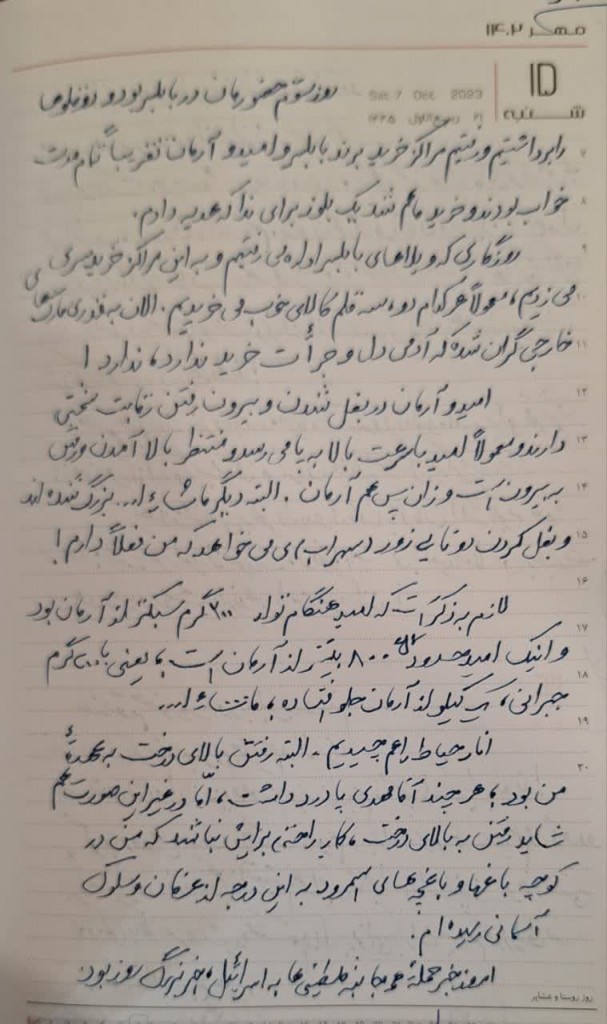 مهر ۱۴۰۲
۱۵
شنبه
Sat. 7 Oct. 2023
۲۱ ربیع‌الاول ۱۴۴۵
روز سوّم حضورمان در بابلسر بود و دوقلوها
را برداشتیم و رفتیم مراکز خرید برند بابلسر و امید و آرمان تقریباً تمام مدت
خواب بودند و خرید ما هم شد یک بلوز برای ندا که هدیه دادم.
روزگاری که ویلاهای بابلسر اداره می‌رفتیم و به این مراکز خرید سری
می‌زدیم، معمولاً هر کدام دو، سه قلم کالای خوب می‌خریدیم. الان به قدری مارک‌های
خارجی گران شده که آدمی دل و جرأت خرید ندارد، ندارد!
امید و آرمان در بغل شدن و بیرون رفتن رقابت سختی
دارند و معمولاً امید با سرعت بالا به پا می‌رسد و منتظر بالا آمدن و رفتن
به بیرون است و زان پس هم آرمان. البته دیگر ماشاءا... بزرگ شده‌اند
و بغل کردن دوتایی زور (سهراب)ی می‌خواهد که من فعلاً دارم!
لازم به ذکر است که امید هنگام تولد ۲۰۰ گرم سبکتر از آرمان بود
و اینک امید حدود ۸۰۰ گرم بیشتر از آرمان است، یعنی با ۲۰۰ گرم
جبرانی، یک کیلو از آرمان جلو افتاده، ماشاءا...
انار حیاط را هم چیدیم. البته رفتن بالای درخت به عهدهٔ
من بود، هر چند آقامهدی پادرد داشت، امّا در غیر این صورت هم
شاید رفتن به بالای درخت، کار راحتی برایش نباشد که من در
کوچه باغها و باغچه‌های اسمرود به این درجه از عرفان و سلوک
آسمانی رسیده‌ام.
امروز خبر حملهٔ همه‌جانبه فلسطینی‌ها به اسرائیل، خبر بزرگ روز بود.
روز روستا و عشایر